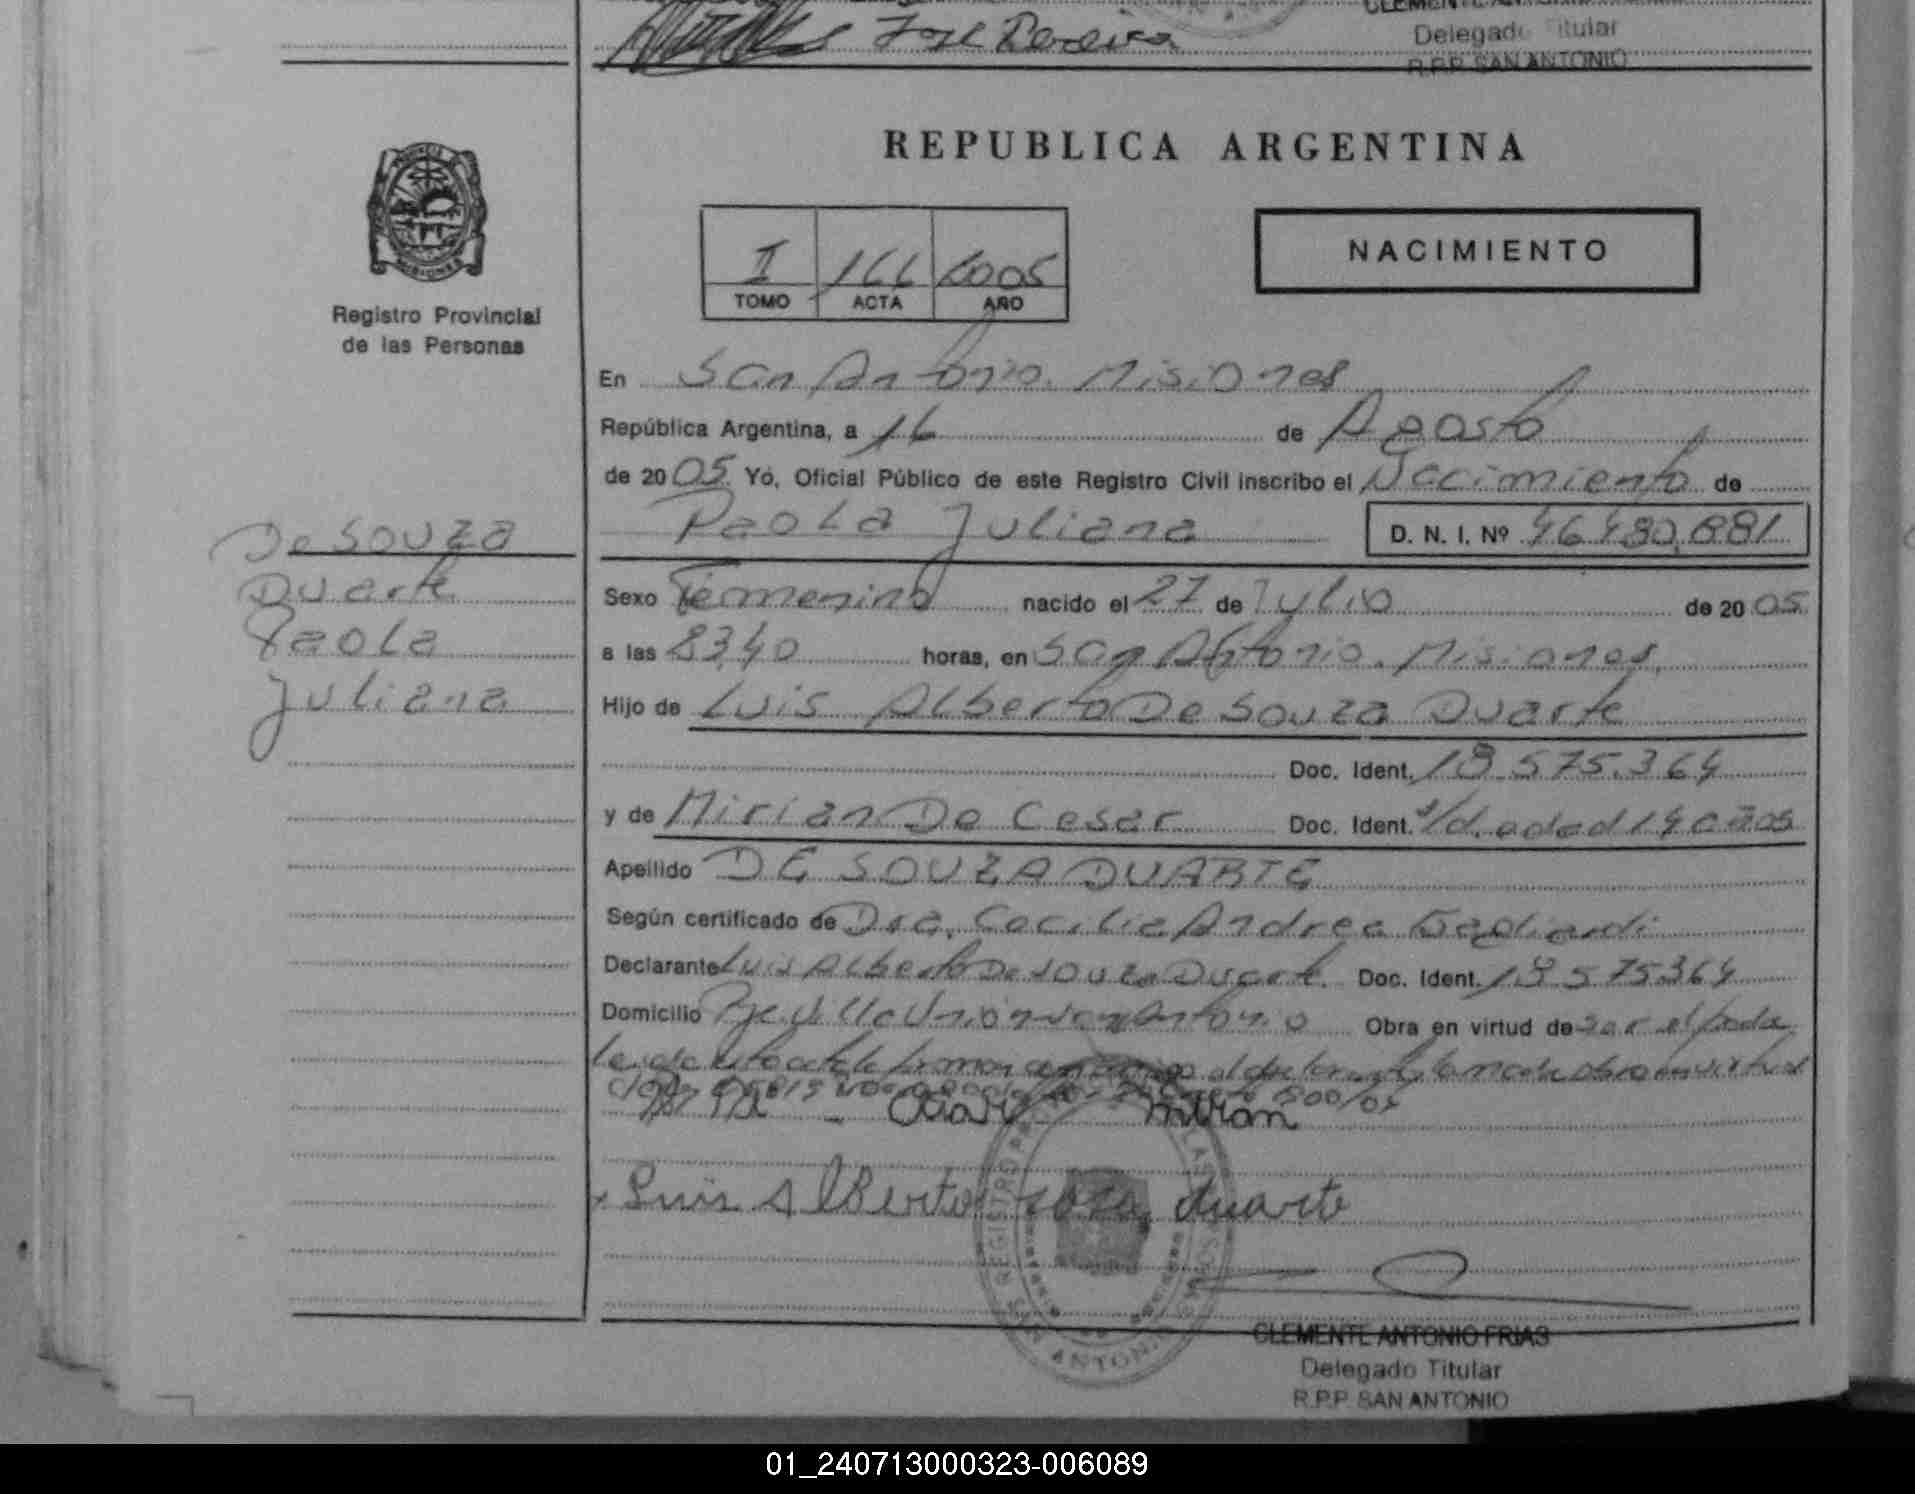 José Pereira
Delegado Titular
R.P.P. SAN ANTONIO
REPUBLICA ARGENTINA
PROVINCIA DE
MISIONES
Registro Provincial
de las Personas
I 166 2005
TOMO ACTA AÑO
NACIMIENTO
En San Antonio. Misiones
República Argentina, a 16 de Agosto
de 2005 Yo, Oficial Público de este Registro Civil inscribo el Nacimiento de
Paola Juliana D. N. I. Nº 46.480.881
De Souza
Duarte
Paola
Juliana
Sexo Femenino nacido el 27 de Julio de 2005
a las 23,40 horas, en San Antonio. Misiones.
Hijo de Luis Alberto De Souza Duarte
Doc. Ident. 18.575.364
y de Mirian De Cesar Doc. Ident. s/d. edad 14 años
Apellido DE SOUZA DUARTE
Según certificado de Dra. Cecilia Andrea Gagliardi
Declarante Luis Alberto De Souza Duarte. Doc. Ident. 18575364
Domicilio Pje. Villa Union San Antonio Obra en virtud de ser el padre
Mirian
Luis Alberto duarte
CLEMENTE ANTONIO FRIAS
Delegado Titular
R.P.P. SAN ANTONIO
01_240713000323-006089